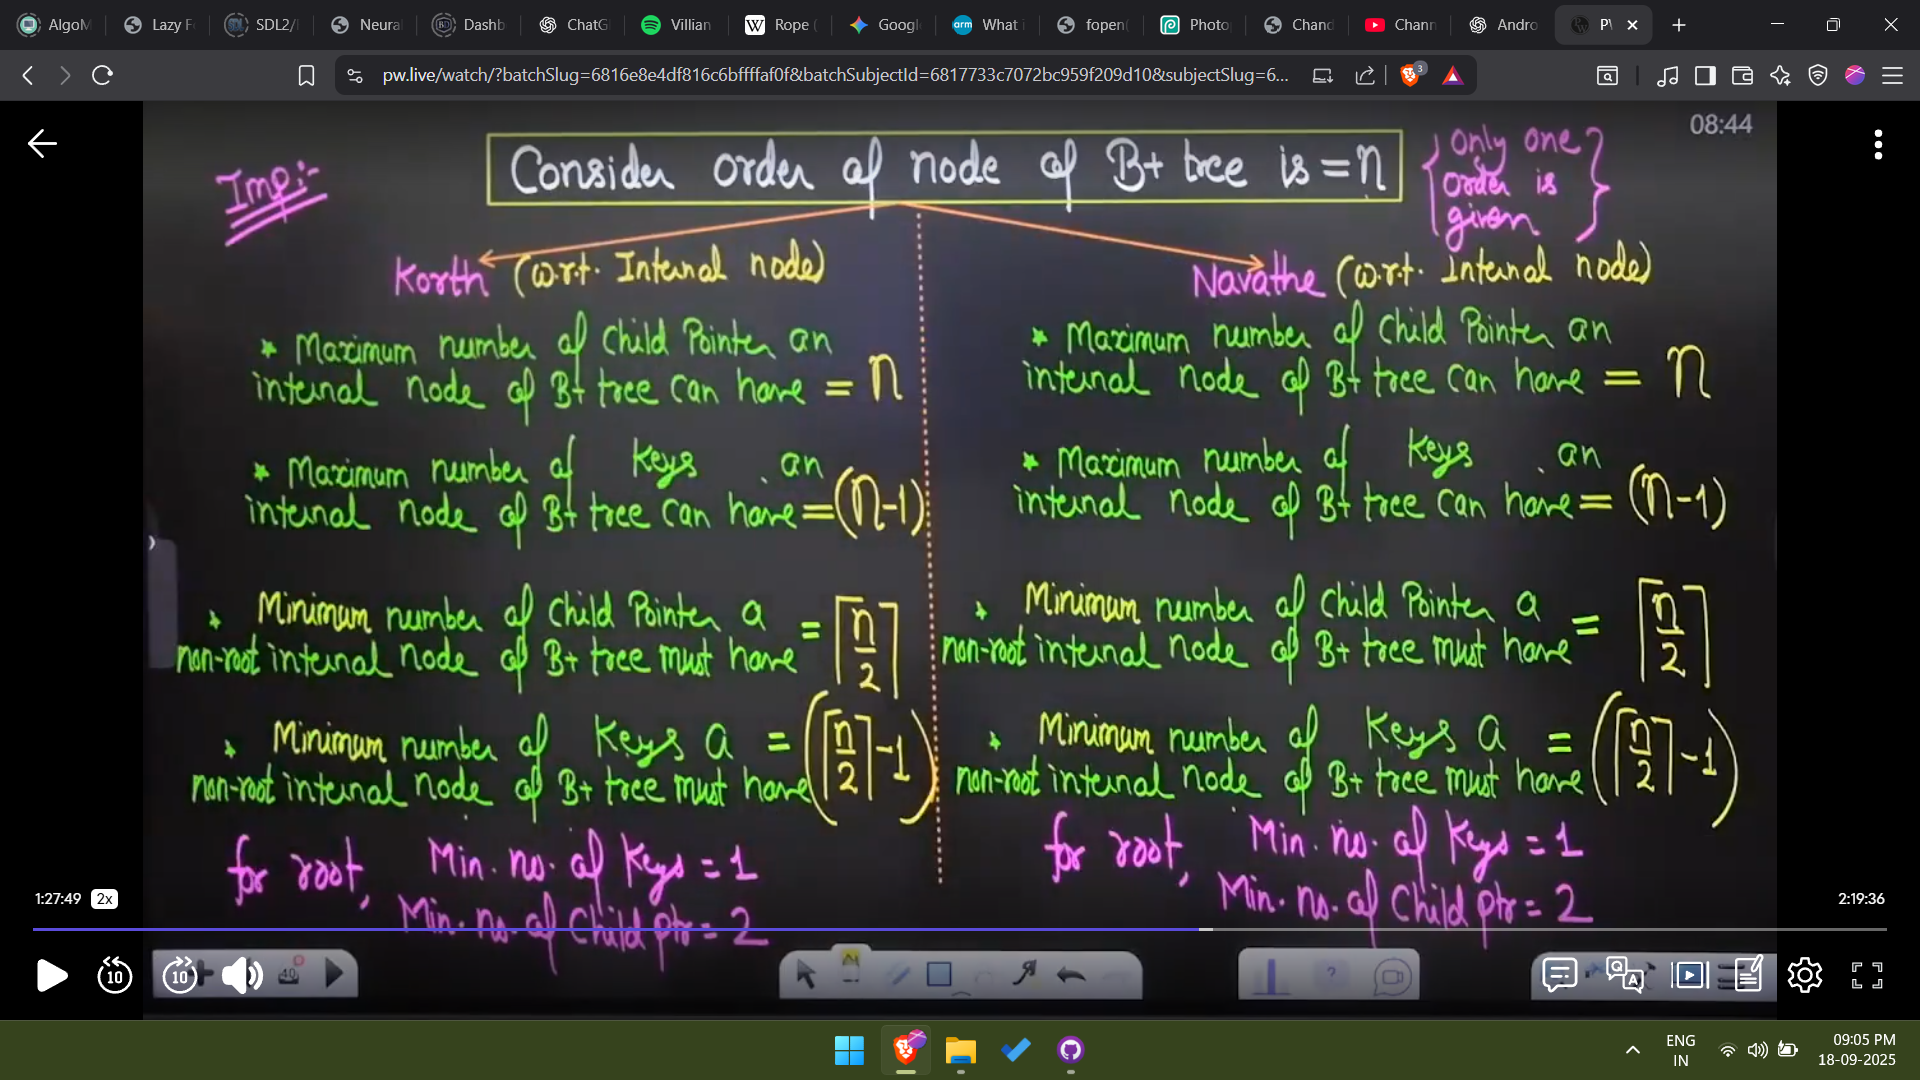 AlgoM
Lazy F
SDL2/
Neural
Dashb
ChatG
Villian
Rope (
Google
What i
fopen(
Photo
Chand
Chann
Andro
PW
pw.live/watch/?batchSlug=6816e8e4df816c6bffffaf0f&batchSubjectId=6817733c7072bc959f209d10&subjectSlug=6...
3
08:44
Imp:-
Consider order of node of B+ tree is = n
{ Only one order is given }
Korth (w.r.t. Internal node)
* Maximum number of Child Pointer an
internal node of B+ tree can have = n
* Maximum number of Keys an
internal node of B+ tree can have = (n-1)
* Minimum number of Child Pointer a
non-root internal node of B+ tree must have = ⌈n/2⌉
* Minimum number of Keys a
non-root internal node of B+ tree must have = (⌈n/2⌉-1)
for root, Min. no. of Keys = 1
Min. no. of Child ptr = 2
Navathe (w.r.t. Internal node)
* Maximum number of Child Pointer an
internal node of B+ tree can have = n
* Maximum number of Keys an
internal node of B+ tree can have = (n-1)
* Minimum number of Child Pointer a
non-root internal node of B+ tree must have = ⌈n/2⌉
* Minimum number of Keys a
non-root internal node of B+ tree must have = (⌈n/2⌉-1)
for root, Min. no. of Keys = 1
Min. no. of Child ptr = 2
1:27:49 2x
2:19:36
10
10
40
ENG
IN
09:05 PM
18-09-2025